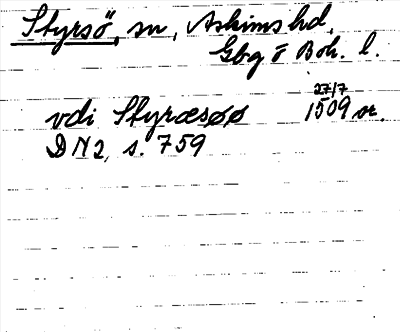 Styrsö, sn, Askims hd,
Gbg o Boh. l.
27/7
vdi Styræsøø 1509 or.
DN2, s. 759